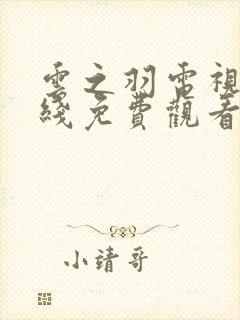 雲之羽電視
綫免費觀看
小靖哥